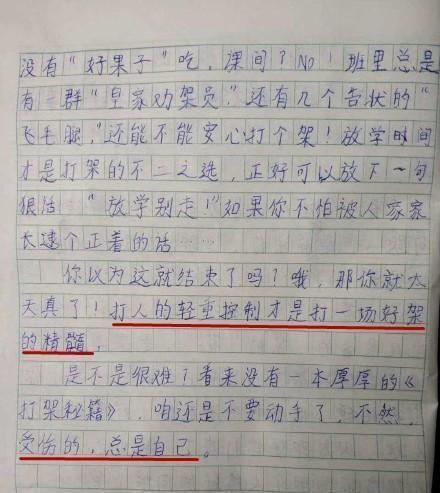 没有“好果子”吃，课间？No！班里总是
有一群“皇家劝架员”还有几个告状的“
飞毛腿，”还能不能安心打个架！放学时间
才是打架的不二之选，正好可以放下一句
狠话“放学别走！”如果你不怕被人家家
长逮个正着的话……
你以为这就结束了吗？哦，那你就太
天真了！打人的轻重控制才是打一场好架
的精髓，
是不是很难？看来没有一本厚厚的《
打架秘籍》，咱还是不要动手了，不然，
受伤的，总是自己。